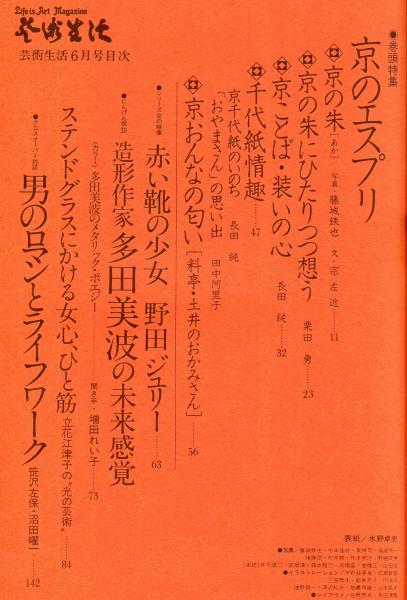 Life is Art Magazine
芸術生活
芸術生活6月号目次
●巻頭特集
京のエスプリ
京の朱[あか] 写真・藤城鉄也 文・宗 左近……11
京の朱にひたりつつ想う 栗田 勇……23
京ことば・装いの心 長田 純……32
千代紙情趣……47
京千代紙のいのち 長田 純
「おやまさん」の思い出 田中阿里子
京おんなの匂い[料亭・土井のおかみさん]……56
●シリーズ女の映像
赤い靴の少女 野田ジュリー……63
●にんげん探訪
造形作家 多田美波の未来感覚
〈カラー〉多田美波のメタリック・ポエジー 聞き手・増田れい子……73
ステンドグラスにかける女心、ひと筋 立花江津子の“光の芸術”……84
●クロスオーバー対談
男のロマンとライフワーク 笹沢左保・沼田曜一……142
表紙/水野卓史
●写真/
●イラストレーション/
●レイアウト/